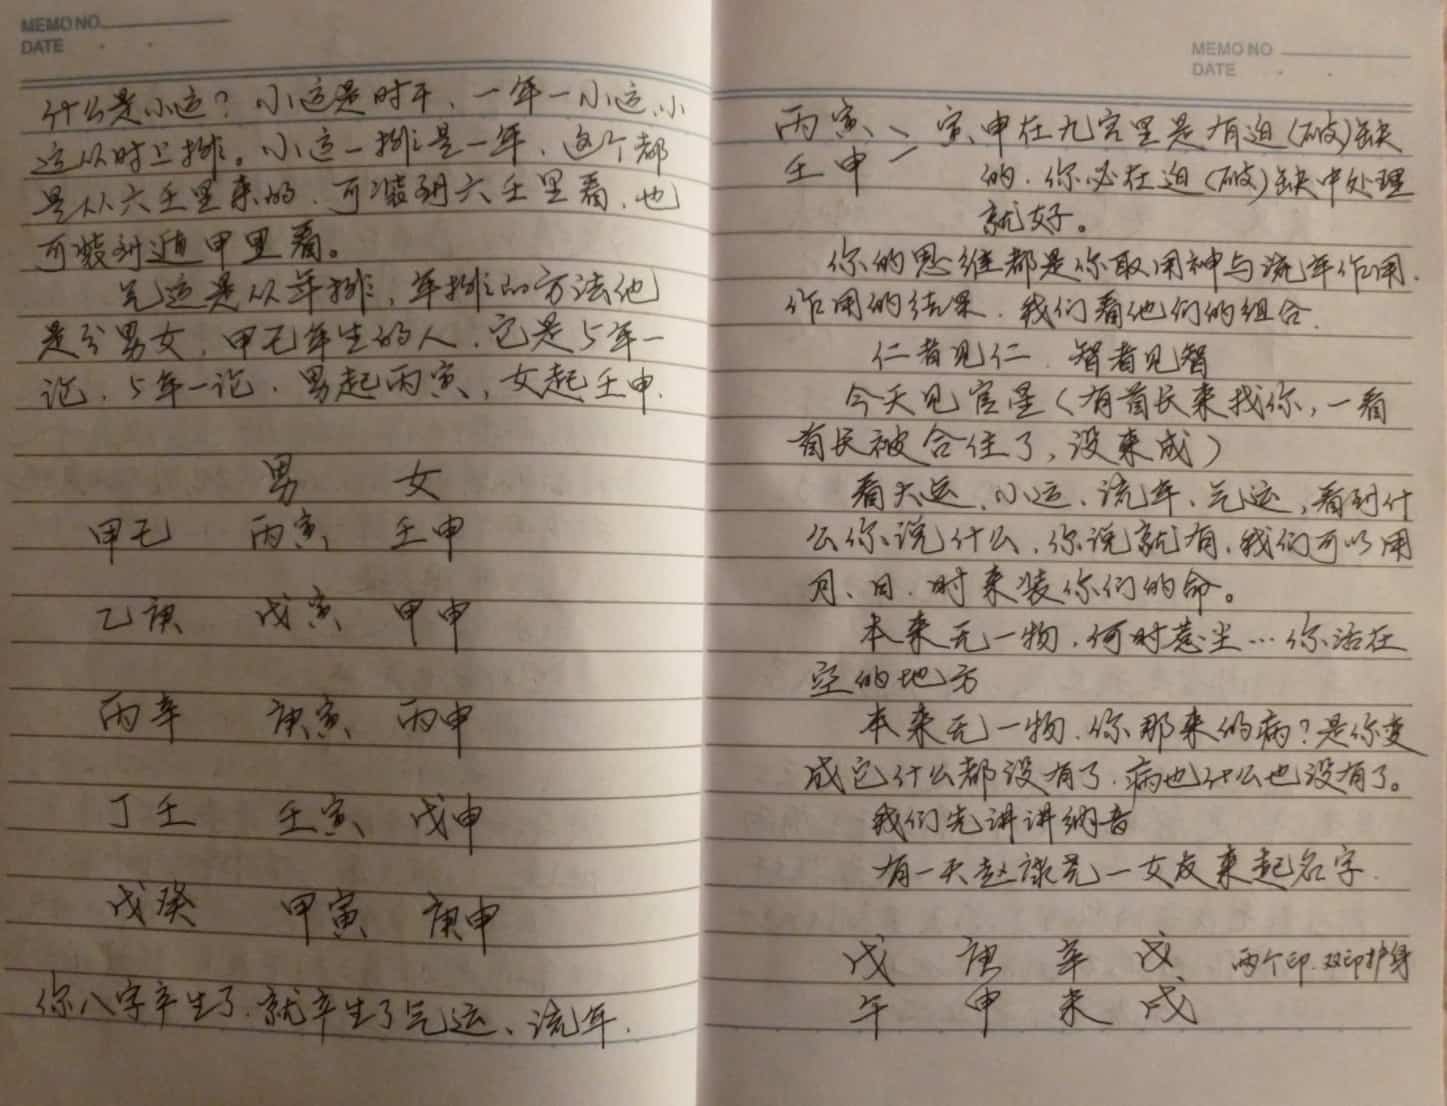 MEMO NO
DATE
什么是小运？小运是时干、一年一小运、小
运从时上排。小运一排是一年、这个都
是从六壬里来的、可装到六壬里看、也
可装到遁甲里看。
气运是从年排，年排的方法他
是分男女、甲己年生的人、它是5年一
论、5年一论、男起丙寅，女起壬申.
男 女
甲己 丙寅 壬申
乙庚 戊寅 甲申
丙辛 庚寅 丙申
丁壬 壬寅 戊申
戊癸 甲寅 庚申
你八字产生了.就产生了气运、流年.
MEMO NO
DATE
丙寅、 寅申在九宫里是有迫(破)缺
壬申 的.你必在迫(破)缺中处理
就好。
你的思维都是你取用神与流年作用.
作用的结果.我们看他们的组合.
仁者见仁 智者见智
今天见官星(有首长来找你，一看
首长被合住了，没来成)
看大运、小运、流年、气运，看到什
么你说什么、你说就有、我们可以用
月、日、时来装你们的命。
本来无一物.何时惹尘…你活在
空的地方
本来无一物.你那来的病？是你变
成它什么都没有了.病也什么也没有了。
我们先讲讲纳音
有一天赵 一女友来起名字.
戊 庚 辛 戊 两个印.双印护身
午 申 未 戌